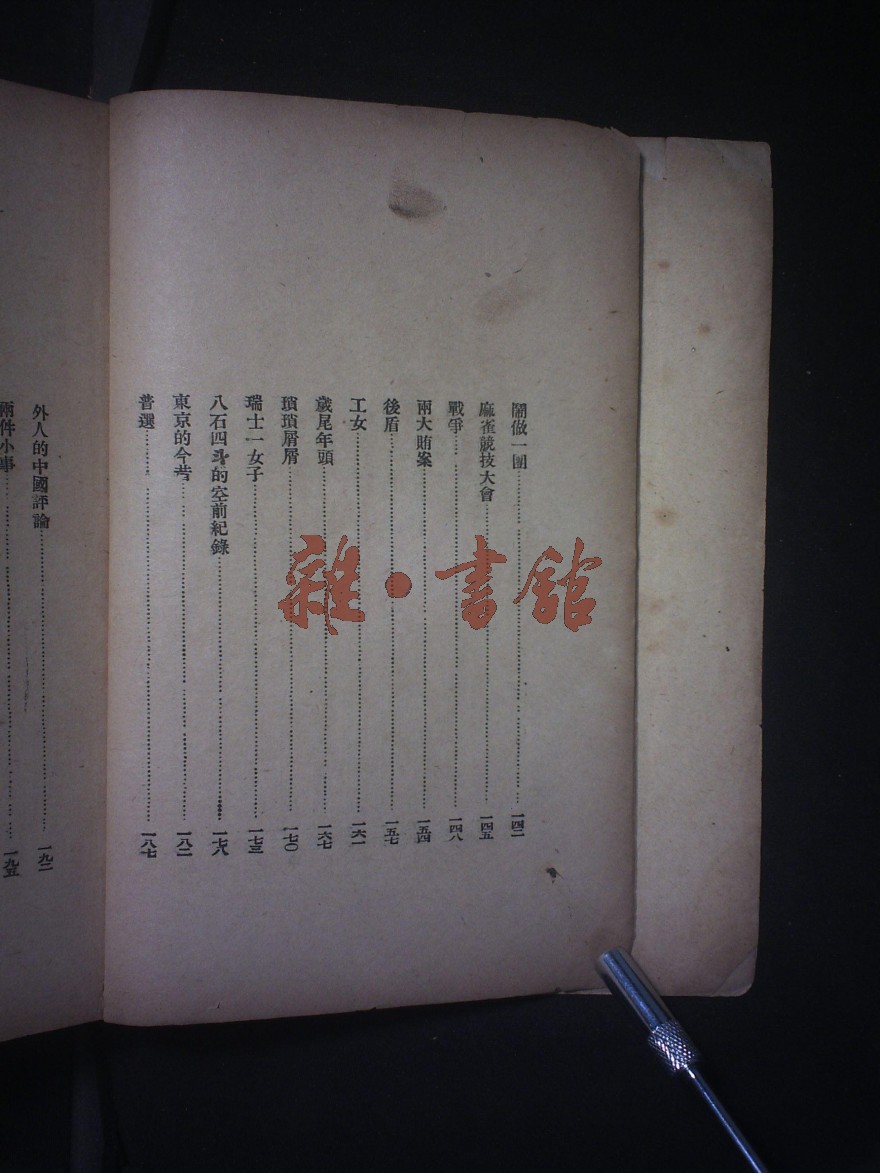 鬧做一團……一四二
麻雀競技大會……一四五
戰爭……一四八
兩大賄案……一五四
後盾……一五七
工女……一六一
歲尾年頭……一六七
瑣瑣屑屑……一七〇
瑞士一女子……一七三
八石四斗的空前紀錄……一七八
東京的今昔……一八二
普選……一八七
外人的中國評論……一九二
兩件小事……一九五
雜·書館